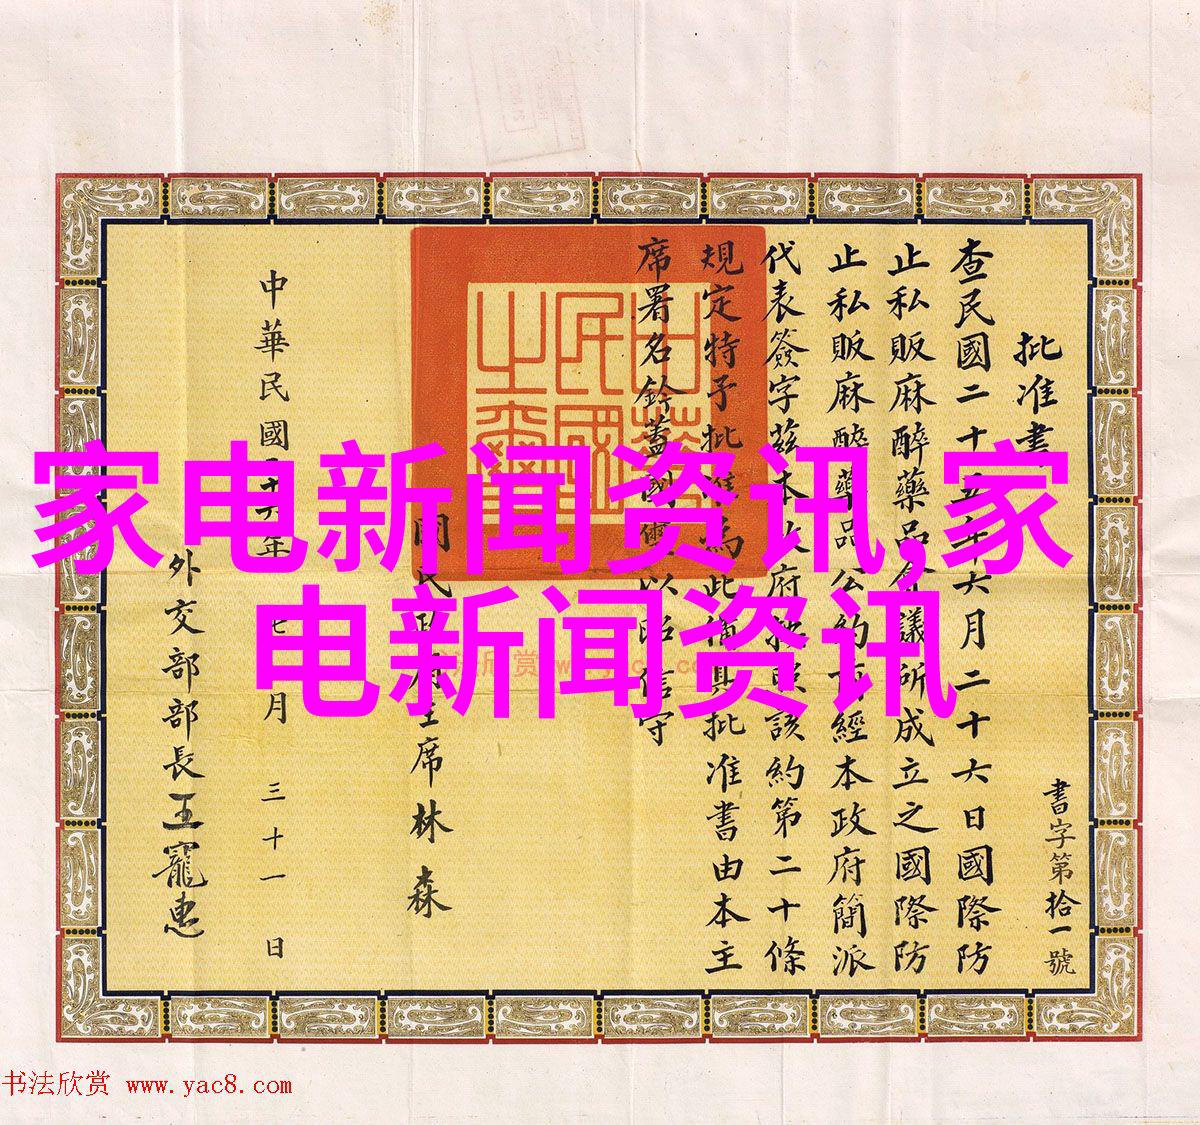 批准書
書字第拾一號
查民國二十五年六月二十六日國際防
止私販麻醉藥品會議所成立之國際防
止私販麻醉藥品公約經本政府簡派
代表簽字茲本政府按照該約第二十條
規定特予批准為此備具批准書由本主
席署名鈐蓋國璽以昭信守
國民政府主席林森
中華民國二十六年七月三十一日
外交部部長王寵惠
中華民國之璽
家电新闻资讯,家
电新闻资讯
书法欣赏 www.yac8.com